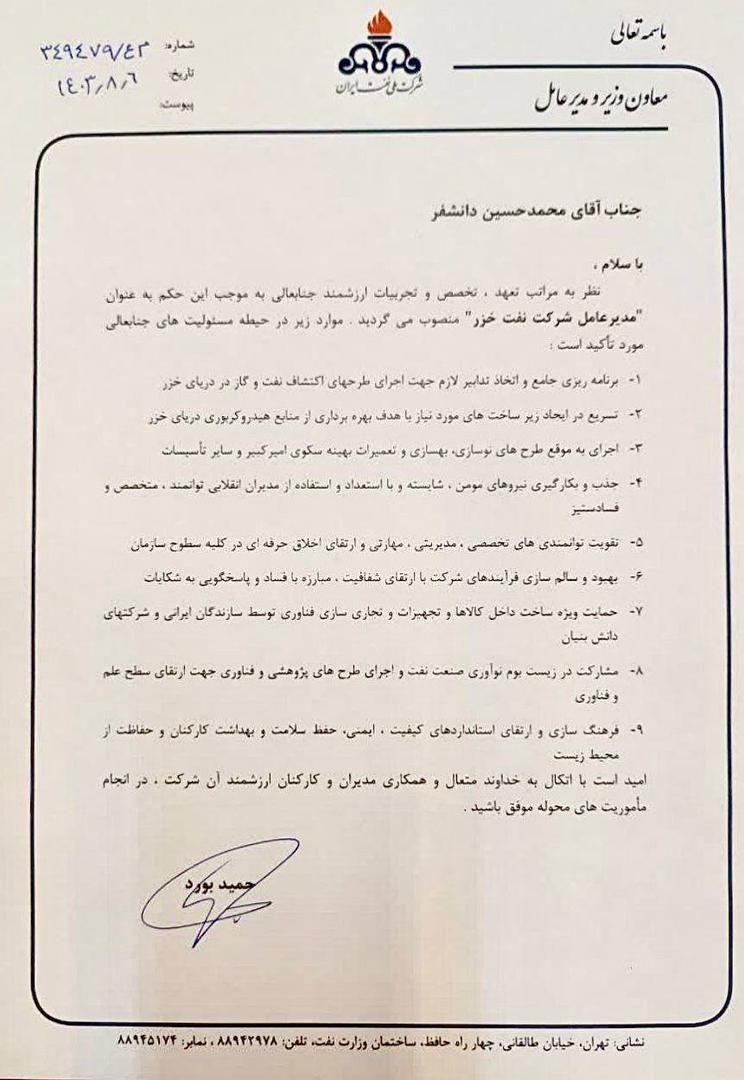 باسمه تعالی
معاون وزیر و مدیر عامل
شرکت ملی نفت ایران
شماره: ۳۴۹۴۷۹/۴۳
تاریخ: ۱۴۰۳/۸/۶
پیوست:
جناب آقای محمدحسین دانشفر
با سلام ،
نظر به مراتب تعهد ، تخصص و تجربیات ارزشمند جنابعالی به موجب این حکم به عنوان
"مدیرعامل شرکت نفت خزر" منصوب می گردید . موارد زیر در حیطه مسئولیت های جنابعالی
مورد تأکید است :
۱- برنامه ریزی جامع و اتخاذ تدابیر لازم جهت اجرای طرحهای اکتشاف نفت و گاز در دریای خزر
۲- تسریع در ایجاد زیر ساخت های مورد نیاز با هدف بهره برداری از منابع هیدروکربوری دریای خزر
۳- اجرای به موقع طرح های نوسازی، بهسازی و تعمیرات بهینه سکوی امیرکبیر و سایر تأسیسات
۴- جذب و بکارگیری نیروهای مومن ، شایسته و با استعداد و استفاده از مدیران انقلابی توانمند ، متخصص و
فسادستیز
۵- تقویت توانمندی های تخصصی ، مدیریتی ، مهارتی و ارتقای اخلاق حرفه ای در کلیه سطوح سازمان
۶- بهبود و سالم سازی فرآیندهای شرکت با ارتقای شفافیت ، مبارزه با فساد و پاسخگویی به شکایات
۷- حمایت ویژه ساخت داخل کالاها و تجهیزات و تجاری سازی فناوری توسط سازندگان ایرانی و شرکتهای
دانش بنیان
۸- مشارکت در زیست بوم نوآوری صنعت نفت و اجرای طرح های پژوهشی و فناوری جهت ارتقای سطح علم
و فناوری
۹- فرهنگ سازی و ارتقای استانداردهای کیفیت ، ایمنی، حفظ سلامت و بهداشت کارکنان و حفاظت از
محیط زیست
امید است با اتکال به خداوند متعال و همکاری مدیران و کارکنان ارزشمند آن شرکت ، در انجام
مأموریت های محوله موفق باشید .
حمید بورد
نشانی: تهران، خیابان طالقانی، چهار راه حافظ، ساختمان وزارت نفت، تلفن: ۸۸۹۴۲۹۷۸ ، نمابر: ۸۸۹۴۵۱۷۴